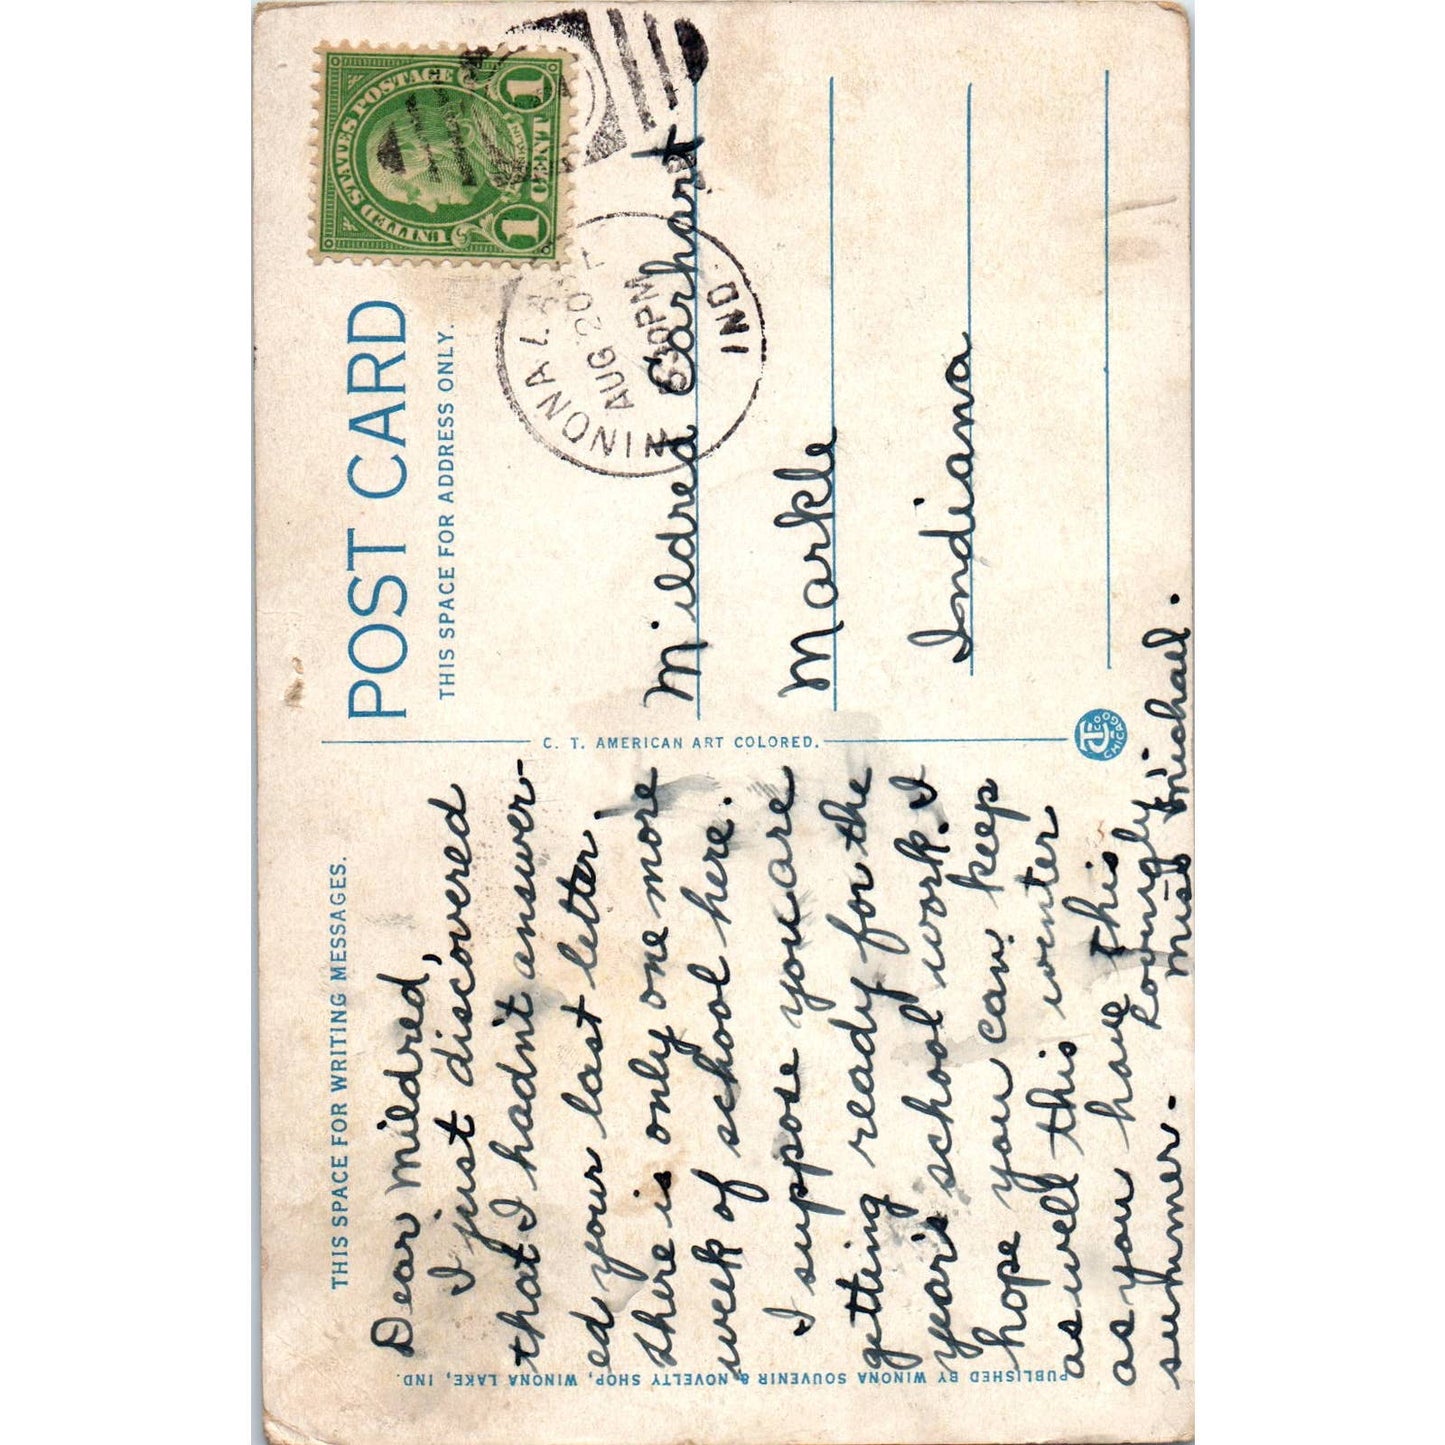 THIS SPACE FOR WRITING MESSAGES.
Dear Mildred,
I just discovered
that I hadn't answer-
ed your last letter.
there is only one more
week of school here.
I suppose you are
getting ready for the
year's school work. I
hope you can keep
as well this winter
as you have this
summer. Lovingly
Miss Michael.
PUBLISHED BY WINONA SOUVENIR & NOVELTY SHOP, WINONA LAKE, IND.
C. T. AMERICAN ART COLORED.
CT CO
CHICAGO
POST CARD
THIS SPACE FOR ADDRESS ONLY.
UNITED STATES POSTAGE
1 CENT 1
WINONA LA
AUG 20
630PM
IND.
Mildred Earhart
Markle
Indiana